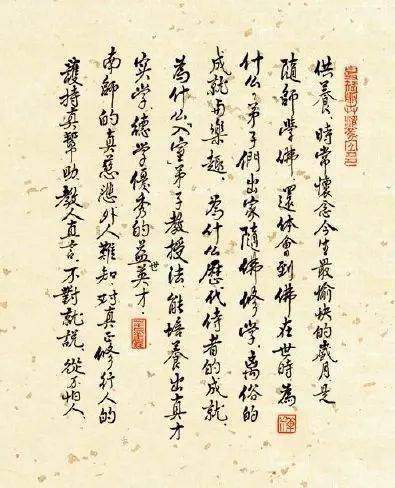 供養、時常懷念今生最愉快的歲月是
隨師學佛、還体會到佛在世時為
什么弟子們出家隨佛修学、离俗的
成就与樂趣、為什么歷代侍者的成就、
為什么入室弟子教授法、能培養出真才
实学、德学優秀的益世英才.
南師的真慈悲外人難知、对真正修行人的
護持真幫助、教人直言、不對就說、從不怕人、